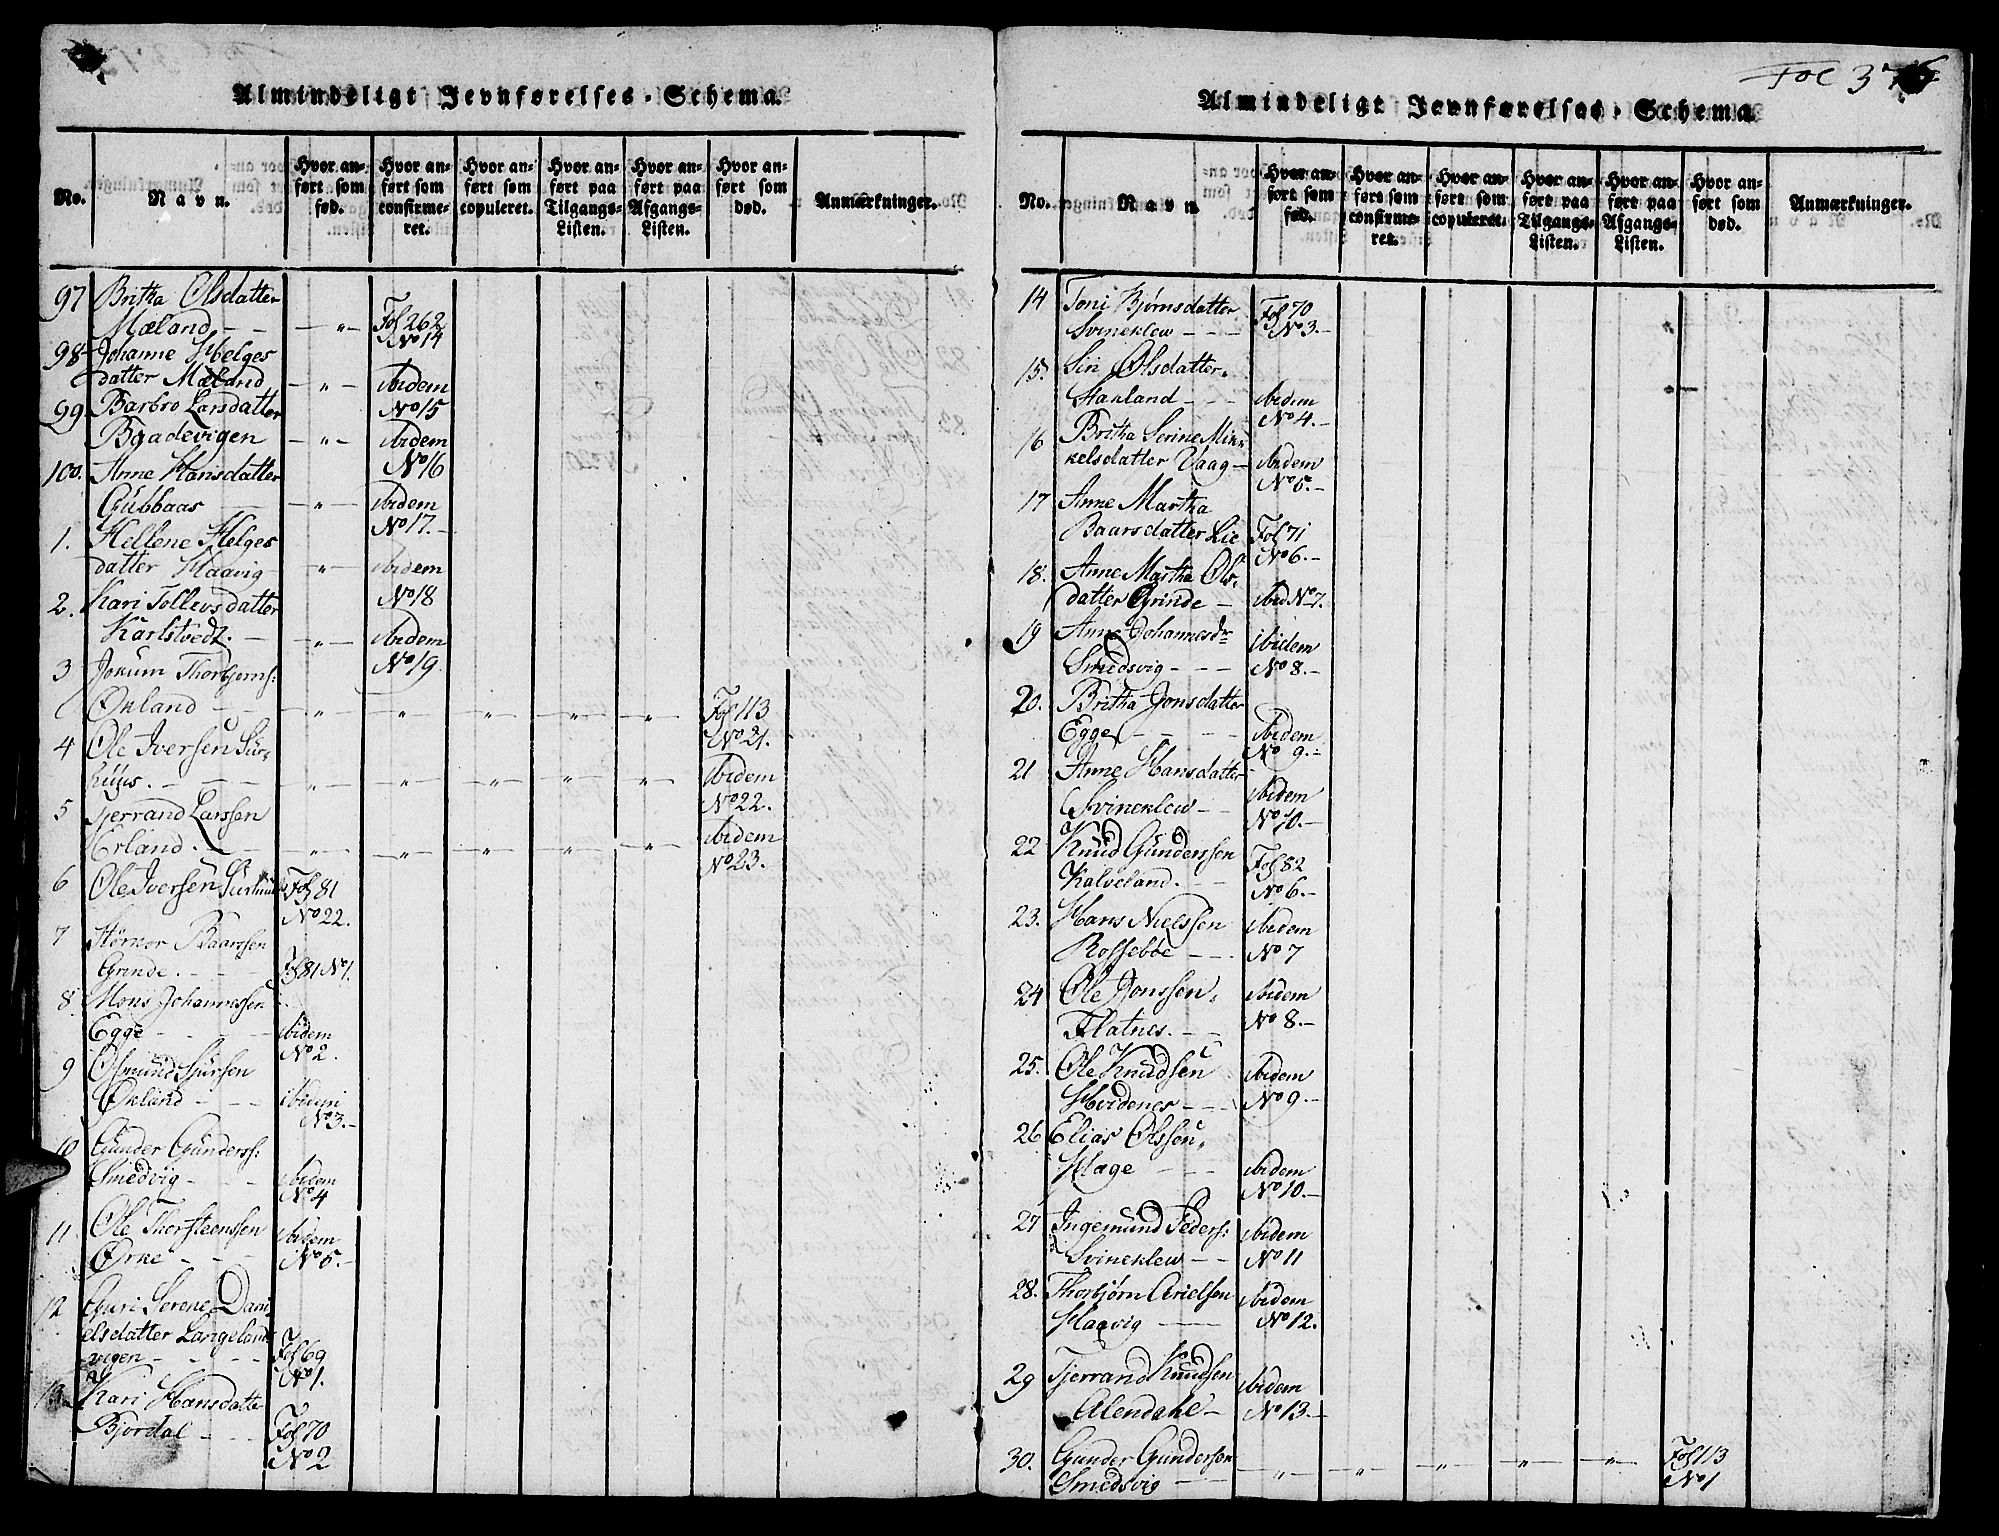 Almindeligt Jevnførelses-Schema.
No. Navn. Hvor anført som fød. Hvor anført som confirmeret. Hvor anført som copuleret. Hvor anført paa Tilgangs-Listen. Hvor anført paa Afgangs-Listen. Hvor anført som død. Anmærkninger.
97 Britha Olsdatter
Mæland - - - " - Fol 262
No 14
98 Johanne Helges
datter Mæland - " - ibidem
No 15
99. Barbro Larsdatter
Bgadevigen - " - ibidem
No 16
100. Anne Hansdatter
Gubbaas - " - ibidem
No 17. -
1. Hellene Helges
datter Haavig - " - ibidem
No 18
2. Kari Tollevsdatter
Karlstvedt. - - " - ibidem
No 19.
3 Jokum Thorbjørns:
Økland - - - " - - " - - " - - " - - " - Fol 113
No 21.
4 Ole Iversen Sür-
hüus. - - - - " - - " - - " - - " - - " - ibidem
No 22.
5 Tjerrand Larssen
Erland. - - " - - " - - " - - " - - " - ibidem
No 23.
6 Ole Iversen Fol 81
No 22.
7 Størkor Baarssen
Grinde. - - - Fol 81 No 1.
8. Mons Johannessen
Egge - - - - ibidem
No 2.
9 Osmund Sjursen
Økland - - - ibidem
No 3. -
10 Gunder Gunderss:
Smedvig - - - ibidem
No 4
11 Ole Thorsteenssen ibidem
Ørke - - - No 5. -
12 Guri Serene Dani
elsdatter Langelands
vigen - - - - Fol 69
No 1.
13. Kari Hansdatte
Bjordal - - - Fol 70
No 2
Fol 376
Almindeligt Jevnførelses-Schema.
No. Navn. Hvor anført som fød. Hvor anført som confirmeret. Hvor anført som copuleret. Hvor anført paa Tilgangs-Listen. Hvor anført paa Afgangs-Listen. Hvor anført som død. Anmærkninger.
14 Toni Bjørnsdatter Fol 70
Svineklew - - - No 3. -
15. Siri Olsdatter.
Stakland - - - ibidem
No 4. -
16 Britha Serine Mik
kelsdatter Vaag - ibidem
No 5. -
17 Anne Martha
Baarsdatter Lie Fol 71
No 6. -
18. Anne Martha Ols-
datter Grinde - ibid No 7.
19 Anne Johannesdr ibidem
Smedsvig - - - No 8. -
20. Britha Jonsdatter
Egge - - - - ibidem
No 9. -
21 Anne Hansdatter ibidem
Svineklew - - No 10. -
22 Knud Gundersen Fol 82
Kalveland. - - No 6. -
23. Hans Nielssen ibidem
Rossebøe - - - No 7
24 Ole Jonssen. ibidem
Flatnes. - - No 8. -
25. Ole Knudsen ibidem
Hvidenes - - - No 9. -
26 Elias Olssen.
Hage - - - ibidem
No 10. -
27 Ingemund Peders: ibidem
Svineklew - - No 11
28. Thorbjørn Arielsen ibidem
Haavig - - No 12.
29 Tjerrand Knudsen ibidem
Alendahl - No 13. -
30. Gunder Gundersen - " - - " - - " - - " - - " - Fol 113
Smedsvig - - No 1